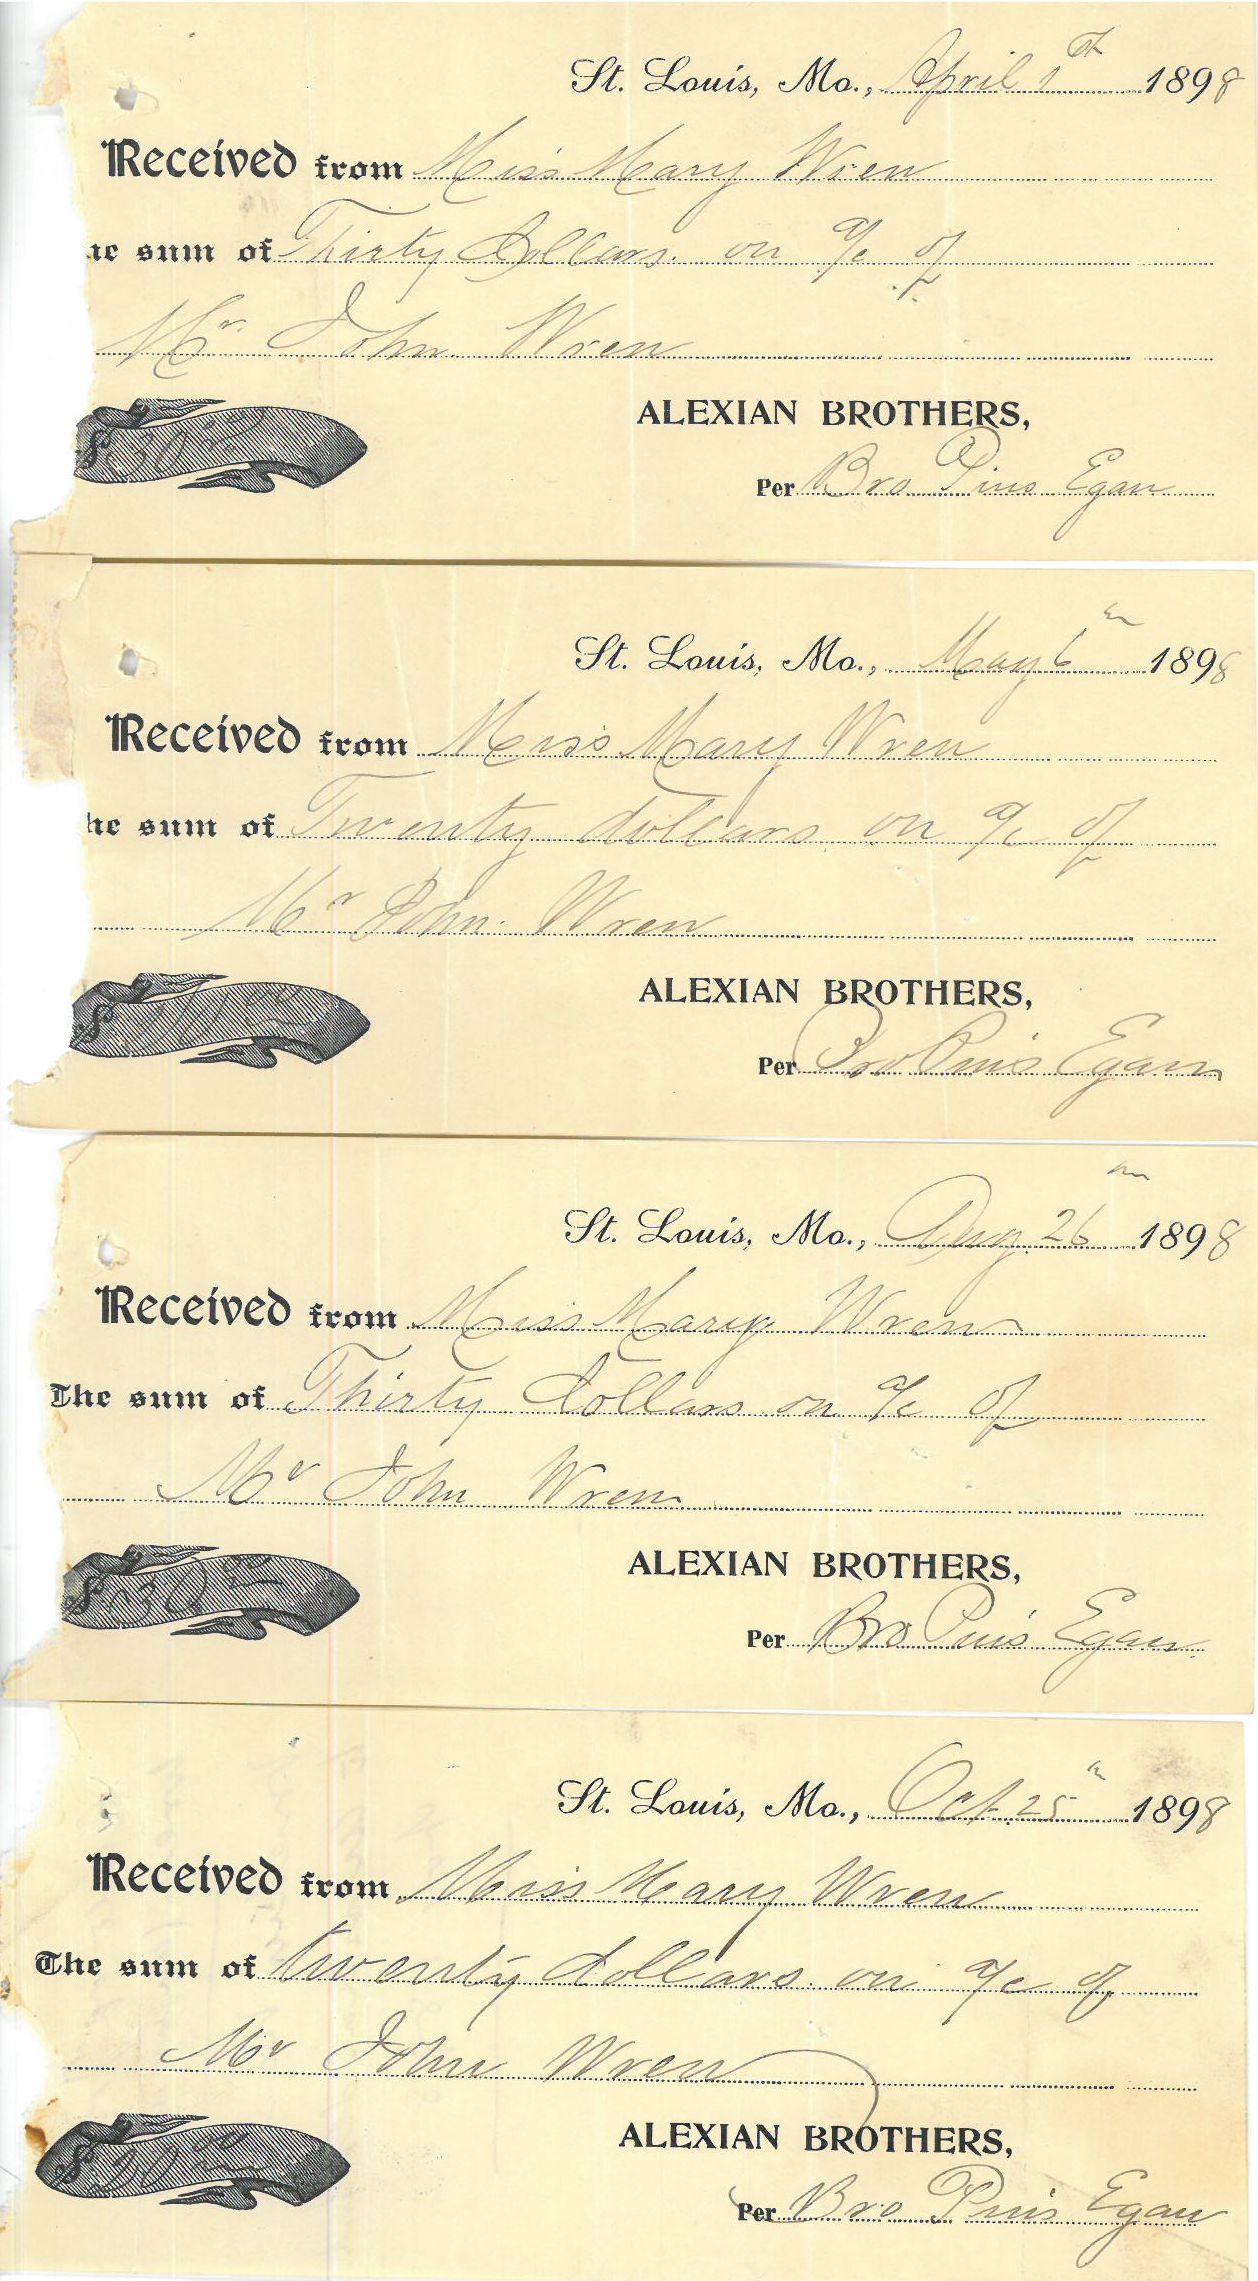 St. Louis, Mo., April 1th 1898
Received from Miss Mary Wren
he sum of Thirty Dollars. on a/c of
Mr. John Wren
$ 30
ALEXIAN BROTHERS,
Per Bro Pius Egan
St. Louis, Mo., May 6th 1898
Received from Miss Mary Wren
he sum of Twenty dollars on a/c of
Mr John Wren
$
ALEXIAN BROTHERS,
Per Bro Pius Egan
St. Louis, Mo., Aug. 26th 1898
Received from Miss Mary Wren
The sum of Thirty dollars on a/c of
Mr John Wren
$ 30
ALEXIAN BROTHERS,
Per Bro Pius Egan
St. Louis, Mo., Oct. 25th 1898
Received from Miss Mary Wren
The sum of twenty dollars. on a/c of
Mr John Wren
$ 20 00
ALEXIAN BROTHERS,
Per Bro Pius Egan